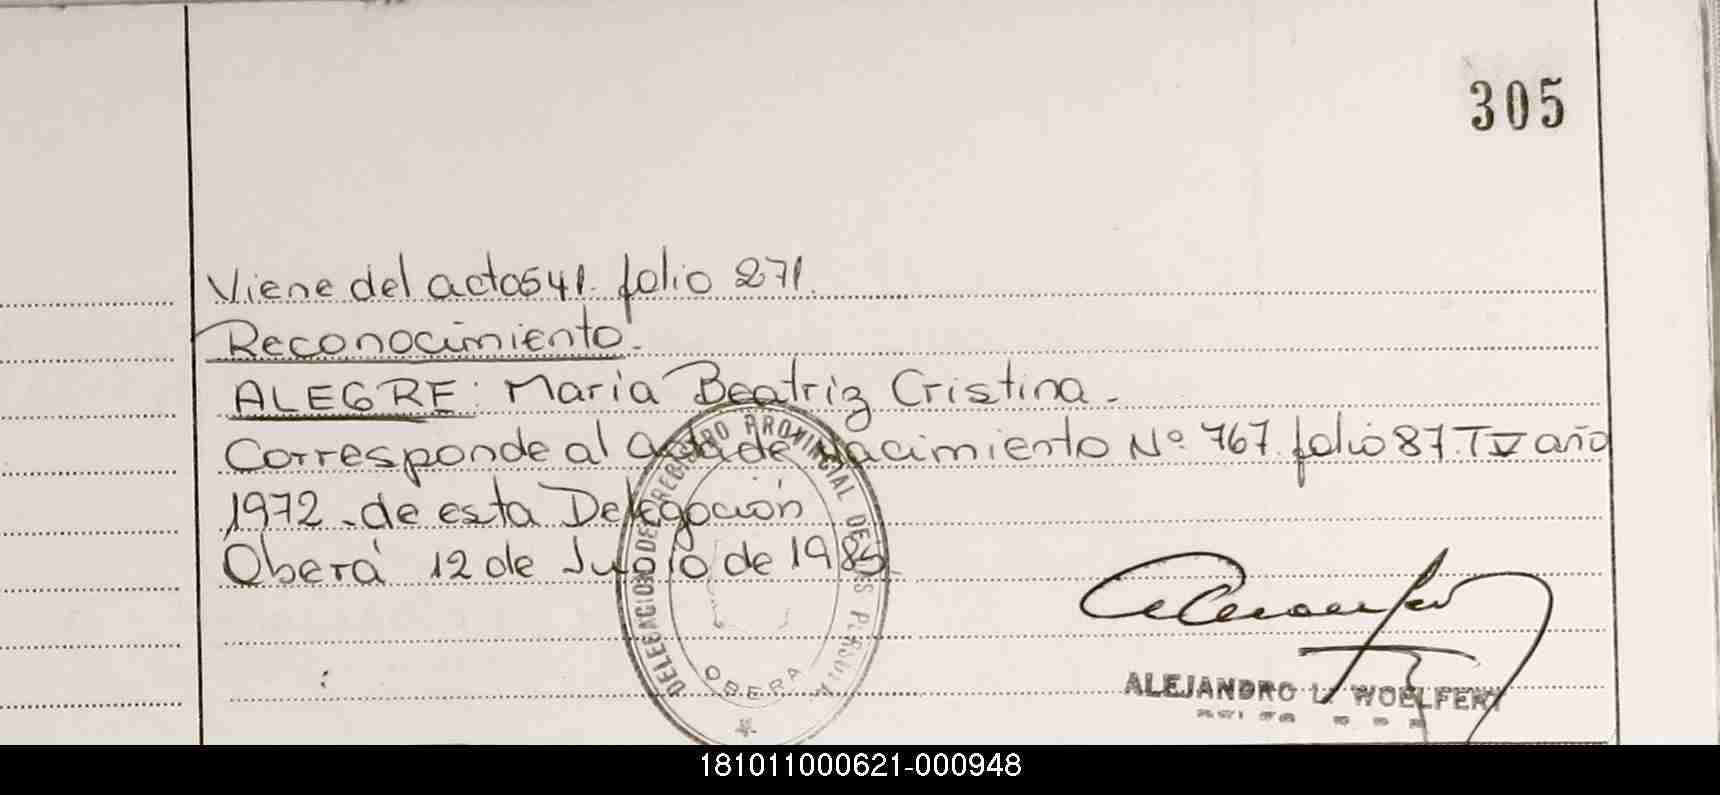 305
Viene del acta 541. folio 271.
Reconocimiento.
ALEGRE: Maria Beatriz Cristina.
Corresponde al acta de Nacimiento Nº 767. folio 87. T IV año
1972. de esta Delegación
Oberá 12 de Junio de 1985
DELEGACION DEL REGISTRO PROVINCIAL DE LAS PERSONAS
OBERA
ALEJANDRO L. WOELFERT
181011000621-000948